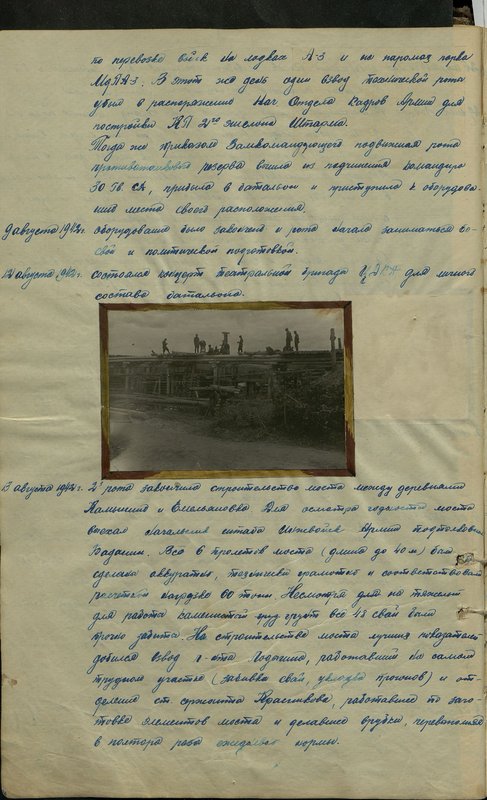 по перевозке войск на лодках А-3 и на паромах парка
МдПА-3. В этот же день один взвод технической роты
убыл в распоряжение Нач Отдела Кадров Армии для
постройки КП 2го эшелона Штарма.
Тогда же приказом Замкомандующего подвижная рота
противотанкового резерва вышла из подчинения командира
30 Гв. СД, прибыла в батальон и приступила к оборудова-
нию места своего расположения.
9 августа 1942 г. оборудование было закончено и рота начала заниматься бо-
евой и политической подготовкой.
12 августа 1942 г. состоялся концерт театральной бригады для личного
состава батальона.
13 августа 1942 г. 2я рота закончила строительство моста между деревнями
и Емельяновка Для осмотра годности моста
выехал начальник штаба Инжвойск Армии подполковник
Все 6 пролетов моста (длина до 40 м) были
сделаны аккуратно, технически грамотно и соответствовали
расчетной нагрузке 60 тонн. Несмотря на тяжелый
для работы каменистый грунт все 48 свай были
прочно забиты. На строительстве моста лучших показателей
добился взвод л-нта Лодыгина, работавший на самом
трудном участке (забивка свай, укладка прогонов) и от-
деление ст. сержанта Красникова, работавшее по заго-
товке элементов моста и делавшее врубки, перевыполняя
в полтора раза нормы.